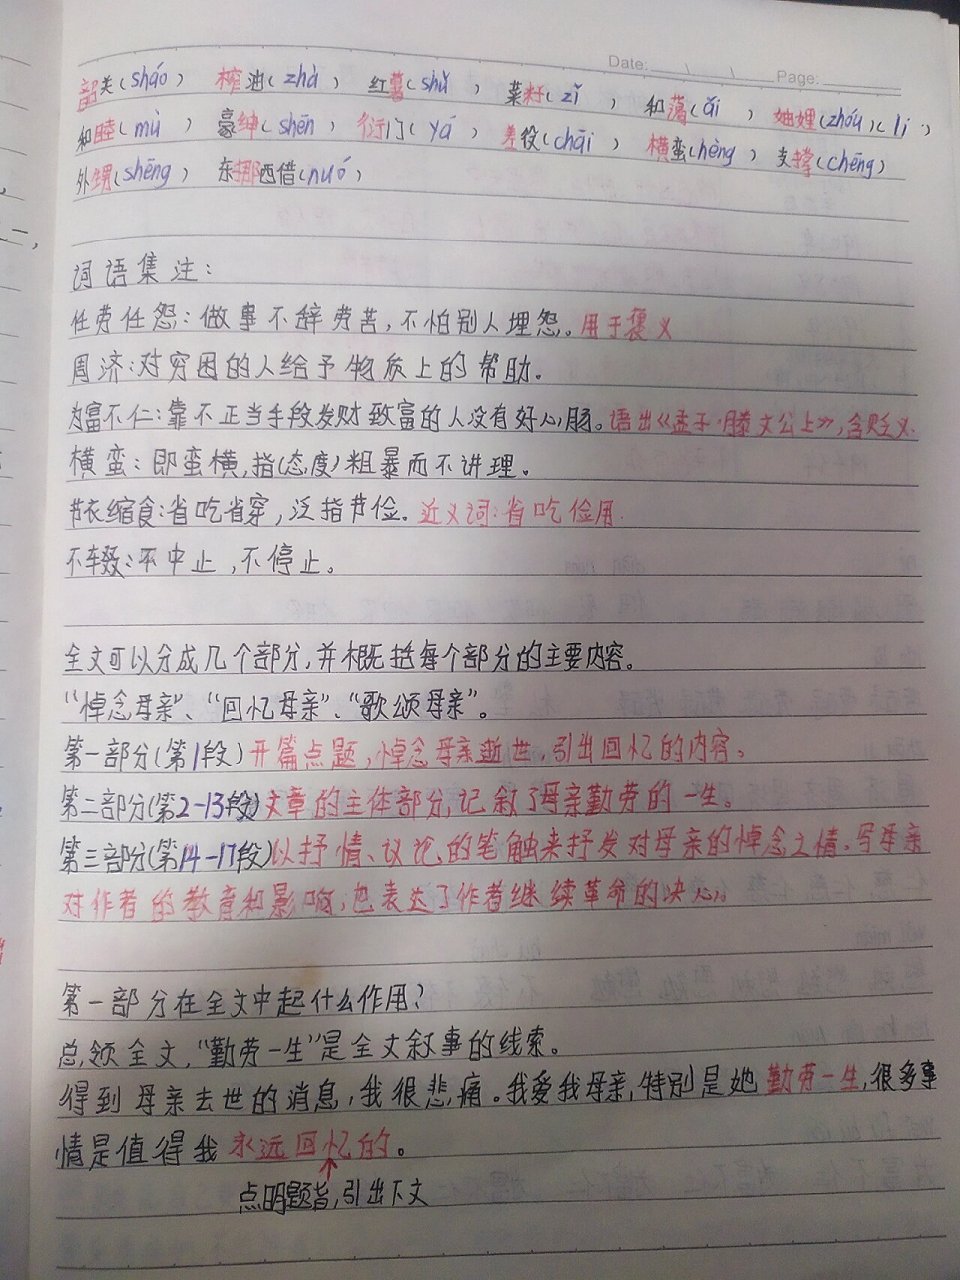 Date: Page:
韶关(sháo) 榨油(zhà) 红薯(shǔ) 菜籽(zǐ) 和蔼(ǎi) 妯娌(zhóu)(li)
和睦(mù) 豪绅(shēn) 衙门(yá) 差役(chāi) 横蛮(hèng) 支撑(chēng)
外甥(shēng) 东挪西借(nuó)
词语集注:
任劳任怨:做事不辞劳苦,不怕别人埋怨。用于褒义
周济:对穷困的人给予物质上的帮助。
为富不仁:靠不正当手段发财致富的人没有好心肠。语出《孟子·滕文公上》,含贬义.
横蛮:即蛮横,指(态度)粗暴而不讲理。
节衣缩食:省吃省穿,泛指节俭。近义词:省吃俭用.
不辍:不中止,不停止。
全文可以分成几个部分,并概括每个部分的主要内容。
“悼念母亲”、“回忆母亲”、“歌颂母亲”。
第一部分(第1段)开篇点题,悼念母亲逝世,引出回忆的内容。
第二部分(第2-13段)文章的主体部分,记叙了母亲勤劳的一生。
第三部分(第14-17段)以抒情、议论的笔触来抒发对母亲的悼念之情。写母亲
对作者的教育和影响,也表达了作者继续革命的决心。
第一部分在全文中起什么作用?
总领全文,“勤劳一生”是全文叙事的线索。
得到母亲去世的消息,我很悲痛。我爱我母亲,特别是她勤劳一生,很多事
情是值得我永远回忆的。
点明题旨,引出下文